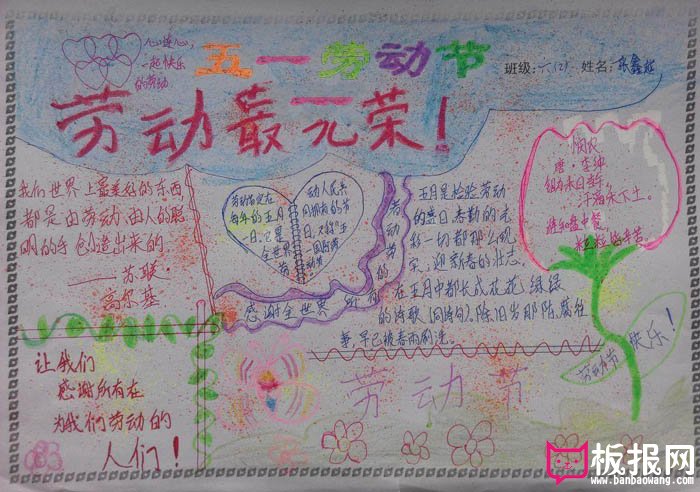 心连心,
一起快乐
的劳动
五一劳动节
班级:六(2) 姓名:张鑫
劳动最光荣!
我们世界上最美好的东西
都是由劳动、由人的聪
明的手创造出来的
——苏联
高尔基
每年的五月
一日,它是
全世界劳
动人民共
同拥有的节
感谢全世界所有的劳动者
五月是检验劳动
的
一切都那么现
实,迎新春的壮志,
在五月中都长成花花绿绿
的诗歌
早已被春雨刷洗。
悯农
唐 李绅
锄禾日当午,
汗滴禾下土。
谁知盘中餐
粒粒皆辛苦。
劳动节快乐!
让我们
感谢所有在
为我们劳动的
人们!
劳动节
板报网
www.banbaowang.com